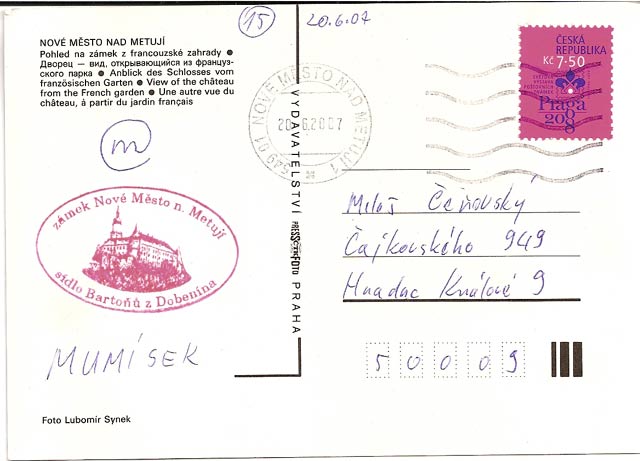 NOVÉ MĚSTO NAD METUJÍ
Pohled na zámek z francouzské zahrady ●
Дворец — вид, открывающийся из француз-
ского парка ● Anblick des Schlosses vom
französischen Garten ● View of the château
from the French garden ● Une autre vue du
château, à partir du jardin français
15
20.6.07
m
zámek Nové Město n. Metují
sídlo Bartoňů z Dobenína
MUMÍSEK
Foto Lubomír Synek
VYDAVATELSTVÍ PRESSFOTO PRAHA
549 01 NOVÉ MĚSTO NAD METUJÍ 1
20.6.2007
ČESKÁ
REPUBLIKA
Kč 7·50
SVĚTOVÁ
VÝSTAVA
POŠTOVNÍCH
ZNÁMEK
Praga
2008
Miloš Čeňovský
Čajkovského 949
Hradec Králové 9
5 0 0 0 9